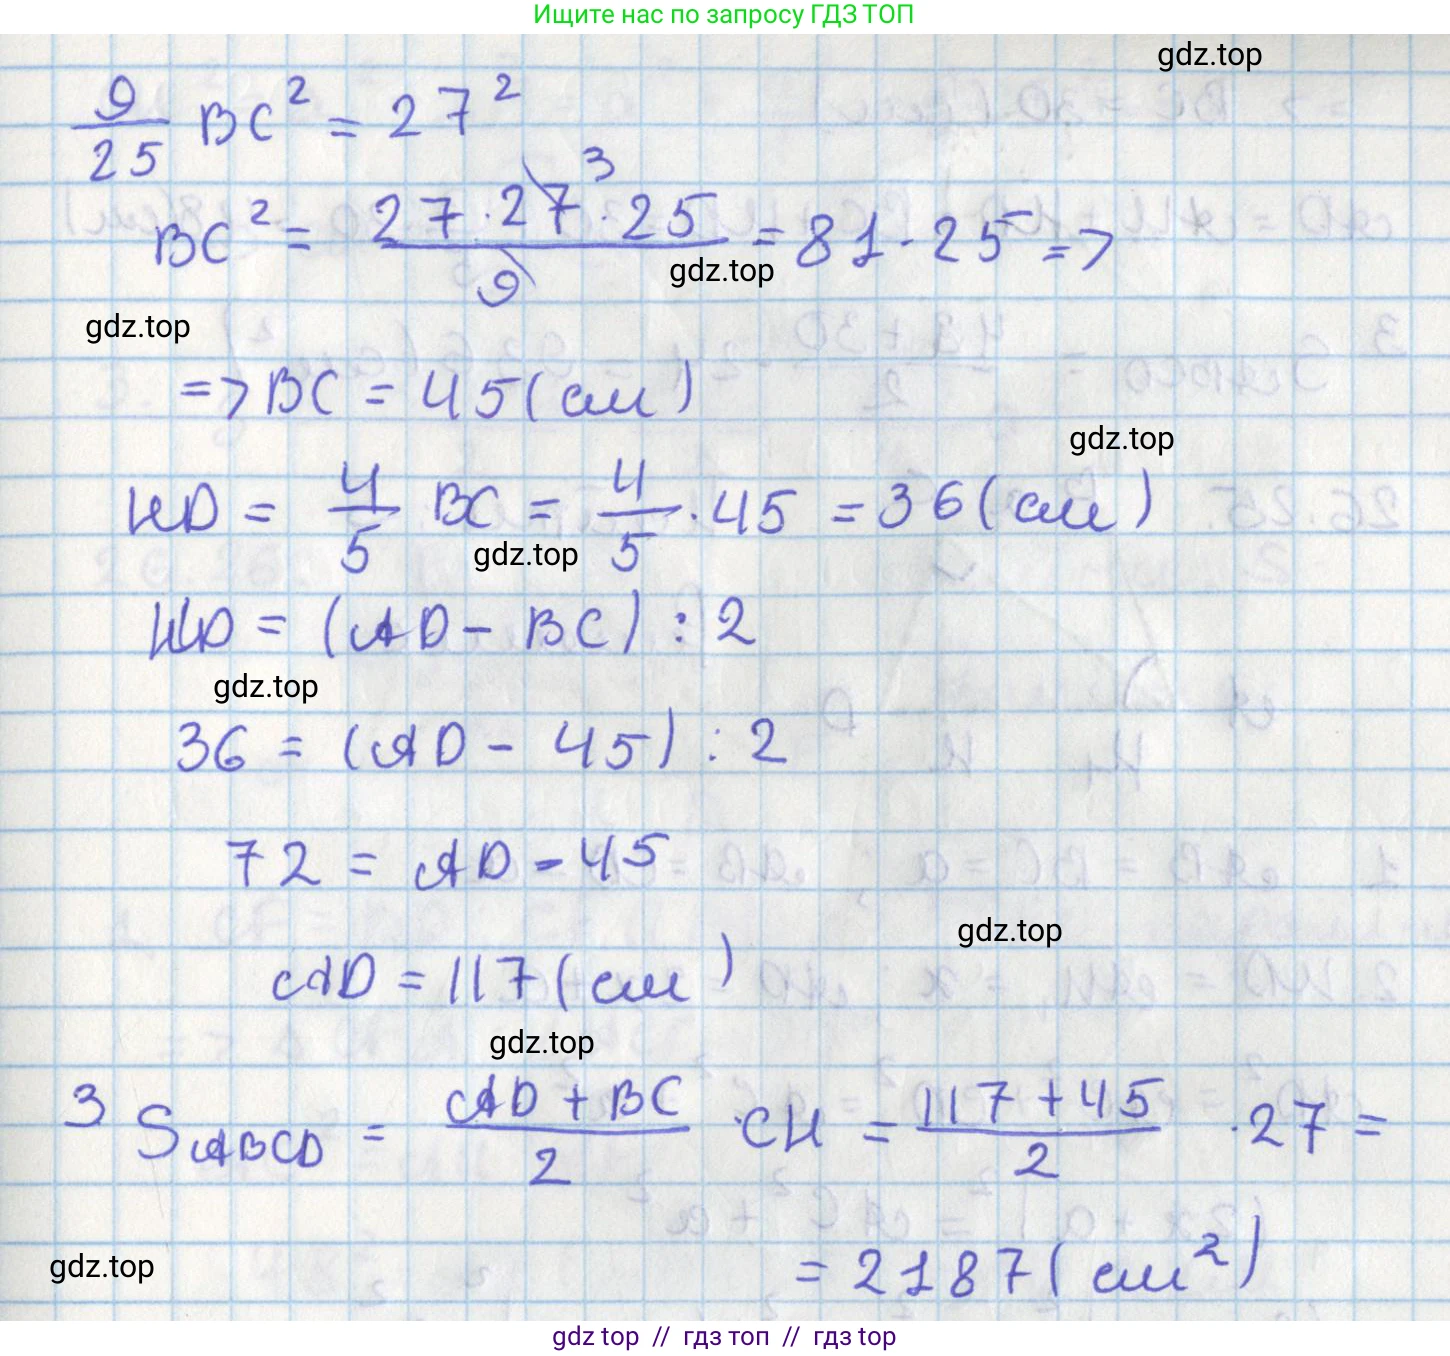 Ищите нас по запросу ГДЗ ТОП
gdz.top
9/25 BC² = 27²
BC² = 27 · 27 · 25 / 9 = 81 · 25 =>
3
gdz.top
gdz.top
=> BC = 45 (см)
gdz.top
HD = 4/5 BC = 4/5 · 45 = 36 (см)
gdz.top
HD = (AD - BC) : 2
gdz.top
36 = (AD - 45) : 2
72 = AD - 45
gdz.top
AD = 117 (см)
gdz.top
3 S ABCD = AD + BC / 2 · CH = 117 + 45 / 2 · 27 =
= 2187 (см²)
gdz.top
gdz top // гдз топ // гдз top